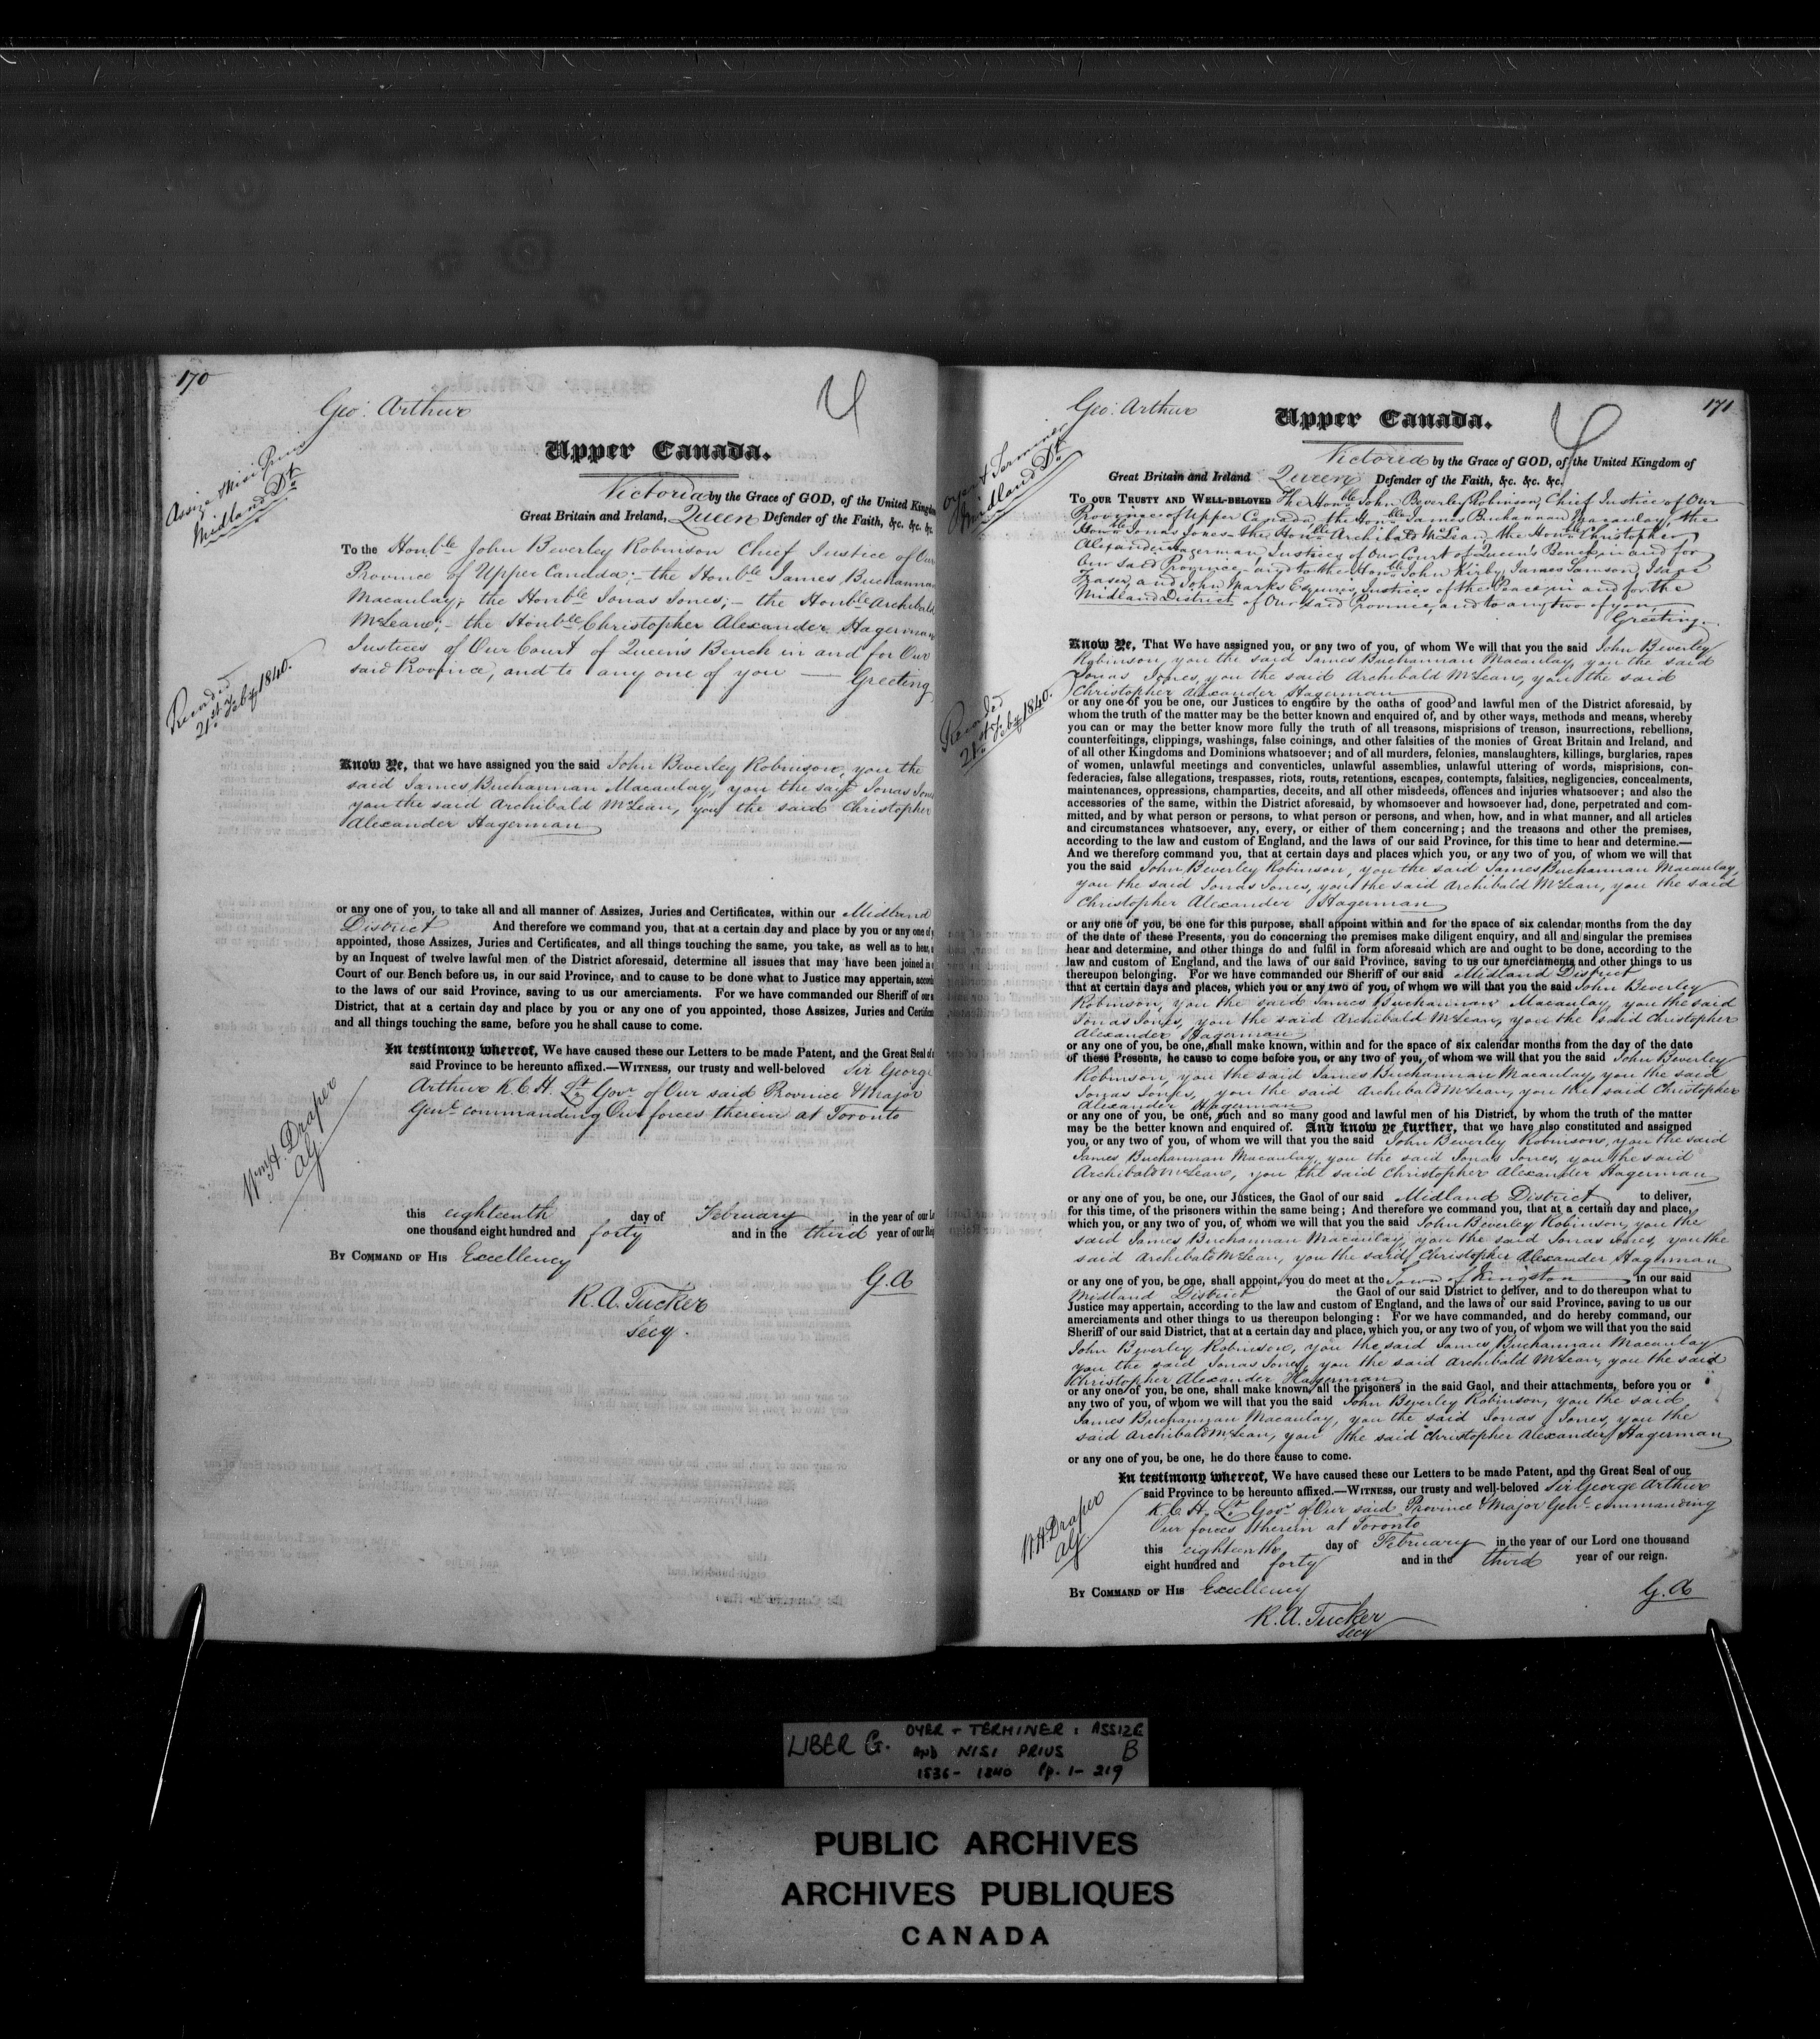 170
Geo: Arthur
Assize & Nisi Prius
Midland Dt
Upper Canada.
Victoria by the Grace of GOD, of the United Kingdom
Great Britain and Ireland, Queen Defender of the Faith, &c. &c. &c.
To the Honble John Beverley Robinson Chief Justice of Our
Province of Upper Canada; - the Honble James Buchannan
Macaulay; the Honble Jonas Jones; - the Honble Archibald
McLean; - the Honble Christopher Alexander Hagerman
Justices of Our Court of Queen's Bench in and for Our
said Province, and to any one of you — Greeting
Recorded
21st Feby 1840.
Know Ye, that we have assigned you the said John Beverley Robinson, you the
said James Buchannan Macaulay, you the said Jonas Jones
you the said Archibald McLean, you the said Christopher
Alexander Hagerman
or any one of you, to take all and all manner of Assizes, Juries and Certificates, within our Midland
District And therefore we command you, that at a certain day and place by you or any one of
appointed, those Assizes, Juries and Certificates, and all things touching the same, you take, as well as to hear,
by an Inquest of twelve lawful men of the District aforesaid, determine all issues that may have been joined in
Court of our Bench before us, in our said Province, and to cause to be done what to Justice may appertain,
to the laws of our said Province, saving to us our amerciaments. For we have commanded our Sheriff of our
District, that at a certain day and place by you or any one of you appointed, those Assizes, Juries and
and all things touching the same, before you he shall cause to come.
In testimony whereof, We have caused these our Letters to be made Patent, and the Great Seal of
said Province to be hereunto affixed.—Witness, our trusty and well-beloved Sir George
Arthur K.C.H. Lt Govr of Our said Province & Major
Genl commanding Our forces therein at Toronto
Wm H. Draper
AG
this eighteenth day of February in the year of our
one thousand eight hundred and forty and in the third year of our
By Command of His Excellency
G. A
R. A. Tucker
Secy.
171
Geo: Arthur
Oyer & Terminer
Midland Dt
Upper Canada.
Victoria by the Grace of GOD, of the United Kingdom of
Great Britain and Ireland Queen Defender of the Faith, &c. &c. &c.
To our Trusty and Well-beloved The Honble John Beverley Robinson, Chief Justice of Our
Province of Upper Canada, the Honble James Buchannan Macaulay, the
Honble Jonas Jones - the Honble Archibald McLean, the Honble Christopher
Alexander Hagerman, Justices of Our Court of Queen's Bench, in and for
Our said Province - and to the Honble John Kirby, James Samson, Isaac
Fraser, and John Marks Esquires, Justices of the Peace in and for the
Midland District of Our said Province, and to any two of you,
Greeting.
Recorded
21st Feby 1840.
Know Ye, That We have assigned you, or any two of you, of whom We will that you the said John Beverley
Robinson, you the said James Buchannan Macaulay, you the said
Jonas Jones, you the said Archibald McLean, you the said
Christopher Alexander Hagerman
or any one of you be one, our Justices to enquire by the oaths of good and lawful men of the District aforesaid, by
whom the truth of the matter may be the better known and enquired of, and by other ways, methods and means, whereby
you can or may the better know more fully the truth of all treasons, misprisions of treason, insurrections, rebellions,
counterfeitings, clippings, washings, false coinings, and other falsities of the monies of Great Britain and Ireland, and
of all other Kingdoms and Dominions whatsoever; and of all murders, felonies, manslaughters, killings, burglaries, rapes
of women, unlawful meetings and conventicles, unlawful assemblies, unlawful uttering of words, misprisions, con-
federacies, false allegations, trespasses, riots, routs, retentions, escapes, contempts, falsities, negligencies, concealments,
maintenances, oppressions, champarties, deceits, and all other misdeeds, offences and injuries whatsoever; and also the
accessories of the same, within the District aforesaid, by whomsoever and howsoever had, done, perpetrated and com-
mitted, and by what person or persons, to what person or persons, and when, how, and in what manner, and all articles
and circumstances whatsoever, any, every, or either of them concerning; and the treasons and other the premises,
according to the law and custom of England, and the laws of our said Province, for this time to hear and determine.—
And we therefore command you, that at certain days and places which you, or any two of you, of whom we will that
you the said John Beverley Robinson, you the said James Buchannan Macaulay,
you the said Jonas Jones, you the said Archibald McLean, you the said
Christopher Alexander Hagerman
or any one of you, be one for this purpose, shall appoint within and for the space of six calendar months from the day
of the date of these Presents, you do concerning the premises make diligent enquiry, and all and singular the premises
hear and determine, and other things do and fulfil in form aforesaid which are and ought to be done, according to the
law and custom of England, and the laws of our said Province, saving to us our amerciaments and other things to us
thereupon belonging. For we have commanded our Sheriff of our said Midland District
that at certain days and places, which you or any two of you, of whom we will that you the said John Beverley
Robinson, you the said James Buchannan Macaulay, you the said
Jonas Jones, you the said Archibald McLean, you the said Christopher
Alexander Hagerman
or any one of you, be one, shall make known, within and for the space of six calendar months from the day of the date
of these Presents, he cause to come before you, or any two of you, of whom we will that you the said John Beverley
Robinson, you the said James Buchannan Macaulay, you the said
Jonas Jones, you the said Archibald McLean, you the said Christopher
Alexander Hagerman
or any one of you, be one, such and so many good and lawful men of his District, by whom the truth of the matter
may be the better known and enquired of. And know ye further, that we have also constituted and assigned
you, or any two of you, of whom we will that you the said John Beverley Robinson, you the said
James Buchannan Macaulay, you the said Jonas Jones, you the said
Archibald McLean, you the said Christopher Alexander Hagerman
or any one of you, be one, our Justices, the Gaol of our said Midland District to deliver,
for this time, of the prisoners within the same being; And therefore we command you, that at a certain day and place,
which you, or any two of you, of whom we will that you the said John Beverley Robinson, you the
said James Buchannan Macaulay, you the said Jonas Jones, you the
said Archibald McLean, you the said Christopher Alexander Hagerman
or any one of you, be one, shall appoint, you do meet at the Town of Kingston in our said
Midland District the Gaol of our said District to deliver, and to do thereupon what to
Justice may appertain, according to the law and custom of England, and the laws of our said Province, saving to us our
amerciaments and other things to us thereupon belonging: For we have commanded, and do hereby command, our
Sheriff of our said District, that at a certain day and place, which you, or any two of you, of whom we will that you the said
John Beverley Robinson, you the said James Buchannan Macaulay
you the said Jonas Jones, you the said Archibald McLean, you the said
Christopher Alexander Hagerman
or any one of you, be one, shall make known, all the prisoners in the said Gaol, and their attachments, before you or
any two of you, of whom we will that you the said John Beverley Robinson, you the said
James Buchannan Macaulay, you the said Jonas Jones, you the
said Archibald McLean, you the said Christopher Alexander Hagerman
or any one of you, be one, he do there cause to come.
In testimony whereof, We have caused these our Letters to be made Patent, and the Great Seal of our
said Province to be hereunto affixed.—Witness, our trusty and well-beloved Sir George Arthur
K.C.H. Lt Govr of Our said Province & Major Genl commanding
Our forces therein at Toronto
W. H. Draper
AG
this eighteenth day of February in the year of our Lord one thousand
eight hundred and forty and in the third year of our reign.
By Command of His Excellency
G. A
R. A. Tucker
Secy
LIBER G. OYER + TERMINER: ASSIZE
AND NISI PRIUS B
1836- 1840 Pp. 1- 219
PUBLIC ARCHIVES
ARCHIVES PUBLIQUES
CANADA